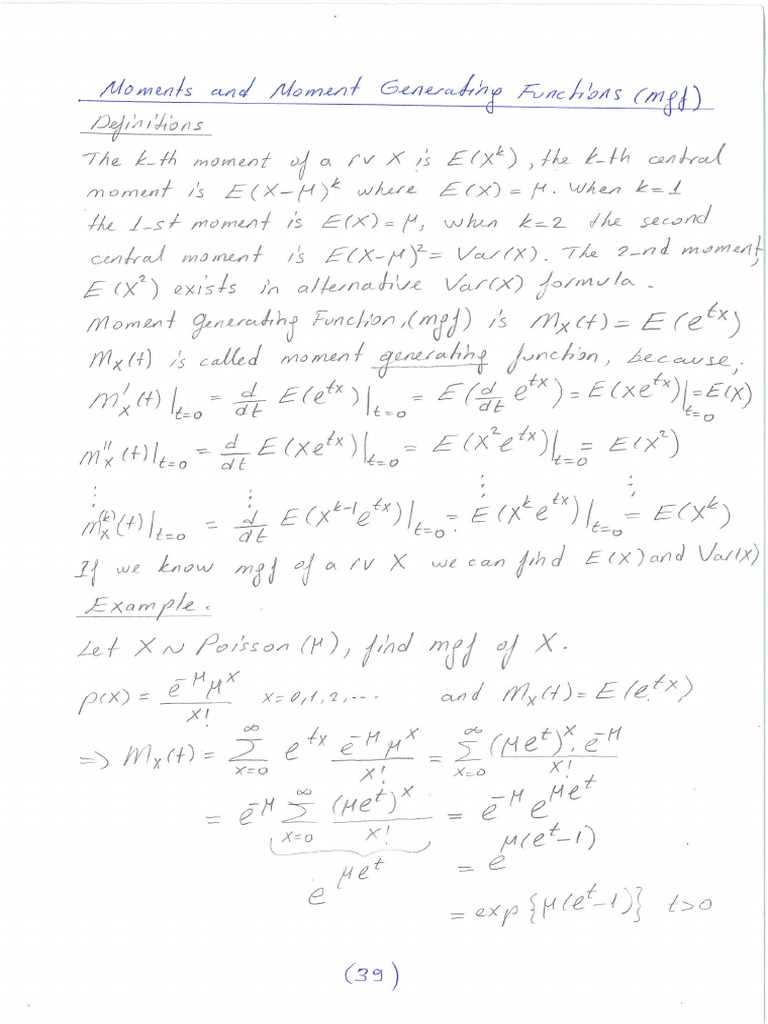 Moments and Moment Generating Functions (mgf)
Definitions
The k-th moment of a rv X is E(X^k), the k-th central
moment is E(X-μ)^k where E(X) = μ. When k=1
the 1-st moment is E(X) = μ, when k=2 the second
central moment is E(X-μ)^2 = Var(X). The 2-nd moment,
E(X^2) exists in alternative Var(X) formula.
Moment Generating Function, (mgf) is m_X(t) = E(e^{tx})
m_X(t) is called moment generating function, because;
m'_X(t)|_{t=0} = d/dt E(e^{tx})|_{t=0} = E(d/dt e^{tx}) = E(Xe^{tx})|_{t=0} = E(X)
m''_X(t)|_{t=0} = d/dt E(Xe^{tx})|_{t=0} = E(X^2 e^{tx})|_{t=0} = E(X^2)
⋮ ⋮ ⋮ ⋮
m_X^{(k)}(t)|_{t=0} = d/dt E(X^{k-1} e^{tx})|_{t=0} = E(X^k e^{tx})|_{t=0} = E(X^k)
If we know mgf of a rv X we can find E(X) and Var(X)
Example.
Let X ~ Poisson (μ), find mgf of X.
p(x) = e^{-μ} μ^x / x! x=0,1,2,... and m_X(t) = E(e^{tx})
=> m_X(t) = Σ_{x=0}^{∞} e^{tx} e^{-μ} μ^x / x! = Σ_{x=0}^{∞} (μe^t)^x · e^{-μ} / x!
= e^{-μ} Σ_{x=0}^{∞} (μe^t)^x / x! = e^{-μ} e^{μe^t}
e^{μe^t} = e^{μ(e^t-1)}
= exp{μ(e^t-1)} t>0
(39)